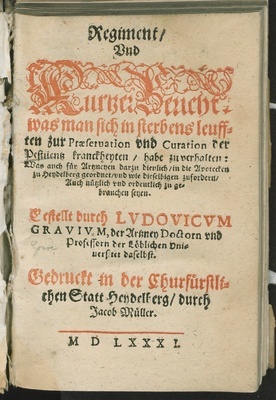 Regiment/
Vnd
Kurtzer Bericht,
was man sich in sterbens leuff-
ten zur Præseruation vnd Curation der
Pestilentz kranckheyten / habe zu verhalten:
Was auch für Artzneyen darzu dienlich / in die Apotecken
zu Heydelberg geordnet / vnd wie dieselbigen zufordern /
Auch nützlich vnd ordentlich zu ge-
brauchen seyen.
Gestellt durch LVDOVICVM
GRAVIVM, der Artzney Doctorn vnd
Professorn der Löblichen Vni-
uersitet daselbst.
Gedruckt in der Churfürstli-
chen Statt Heydelberg / durch
Jacob Müller.
M D LXXXI.